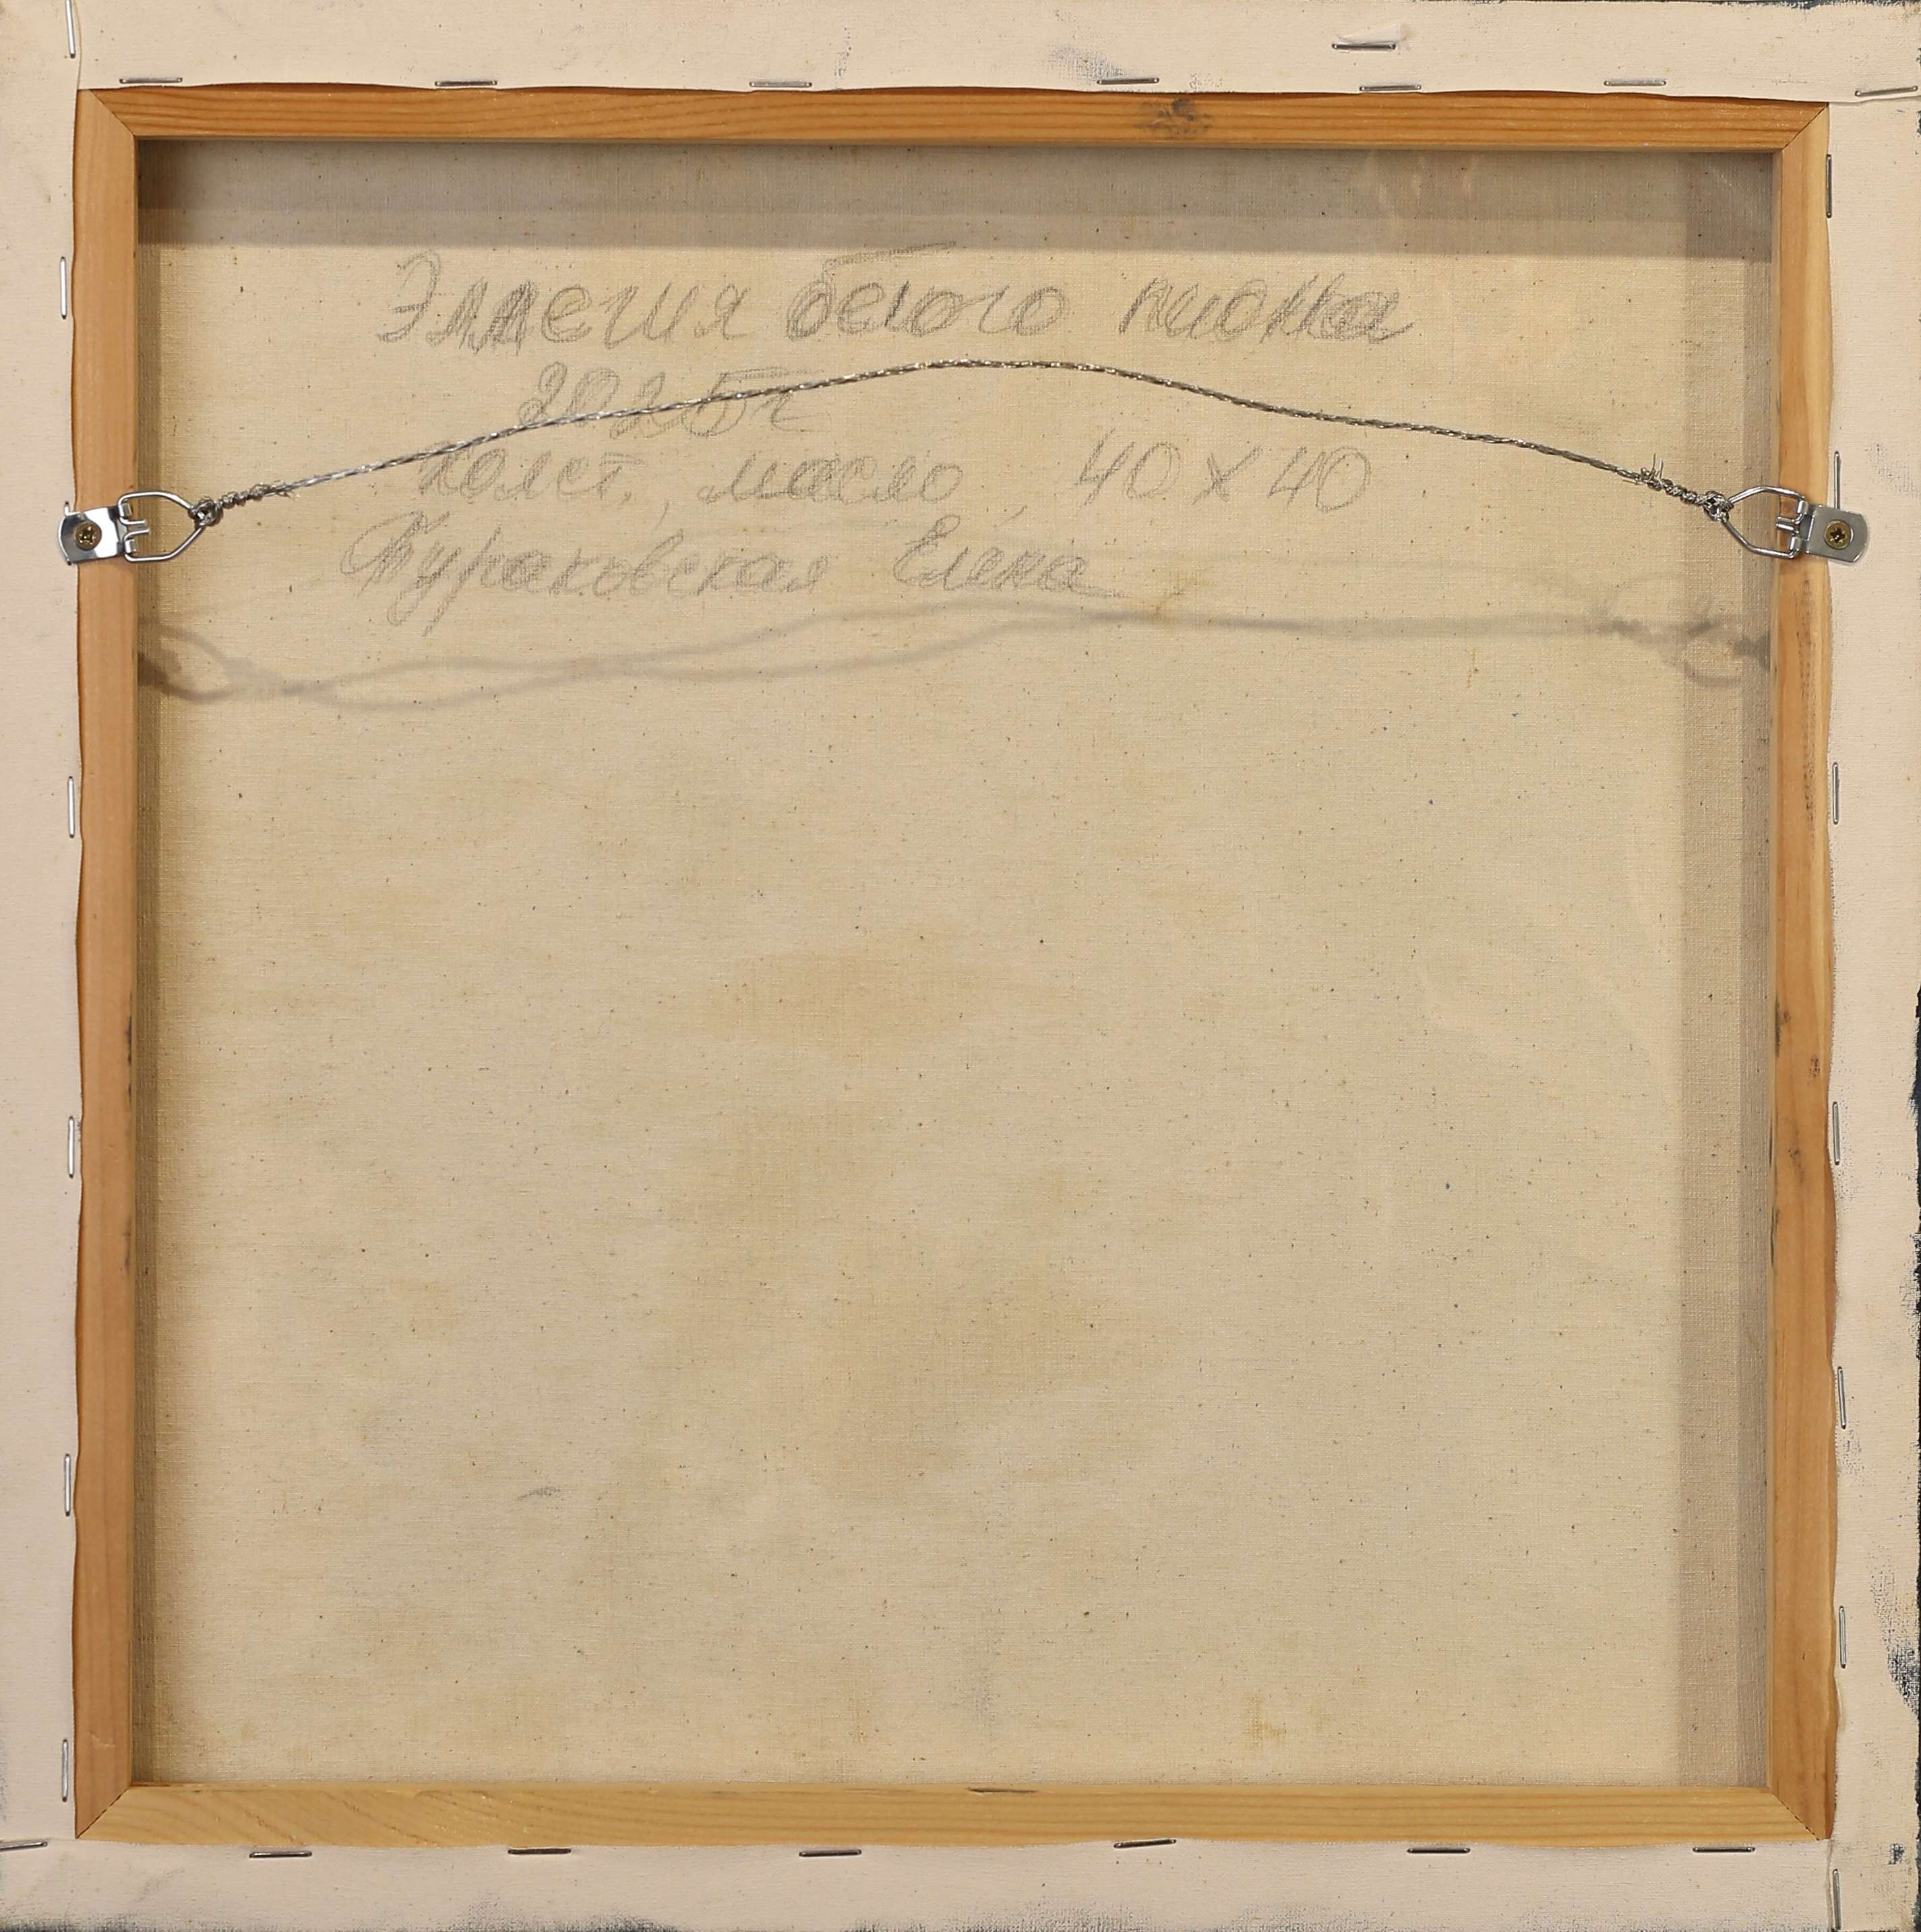 Эллегия белого пиона
2025г
холст, масло, 40 х 40
Тураковская Елена